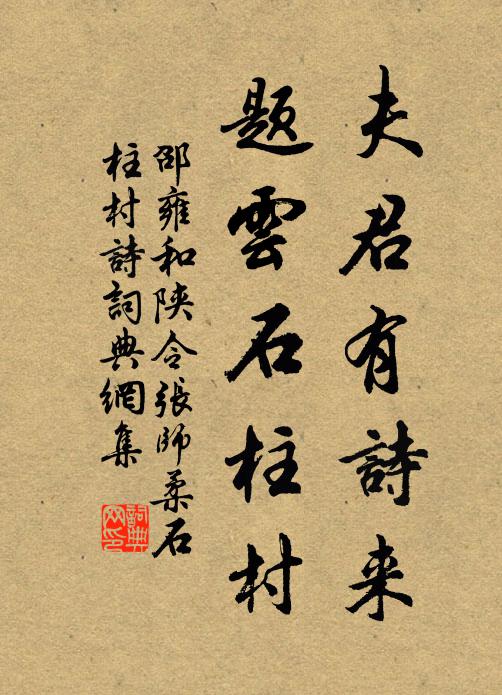 夫君有詩来
題雲石柱村
邵雍和陝令張師柔石
柱村詩詞典網集
詞典網印